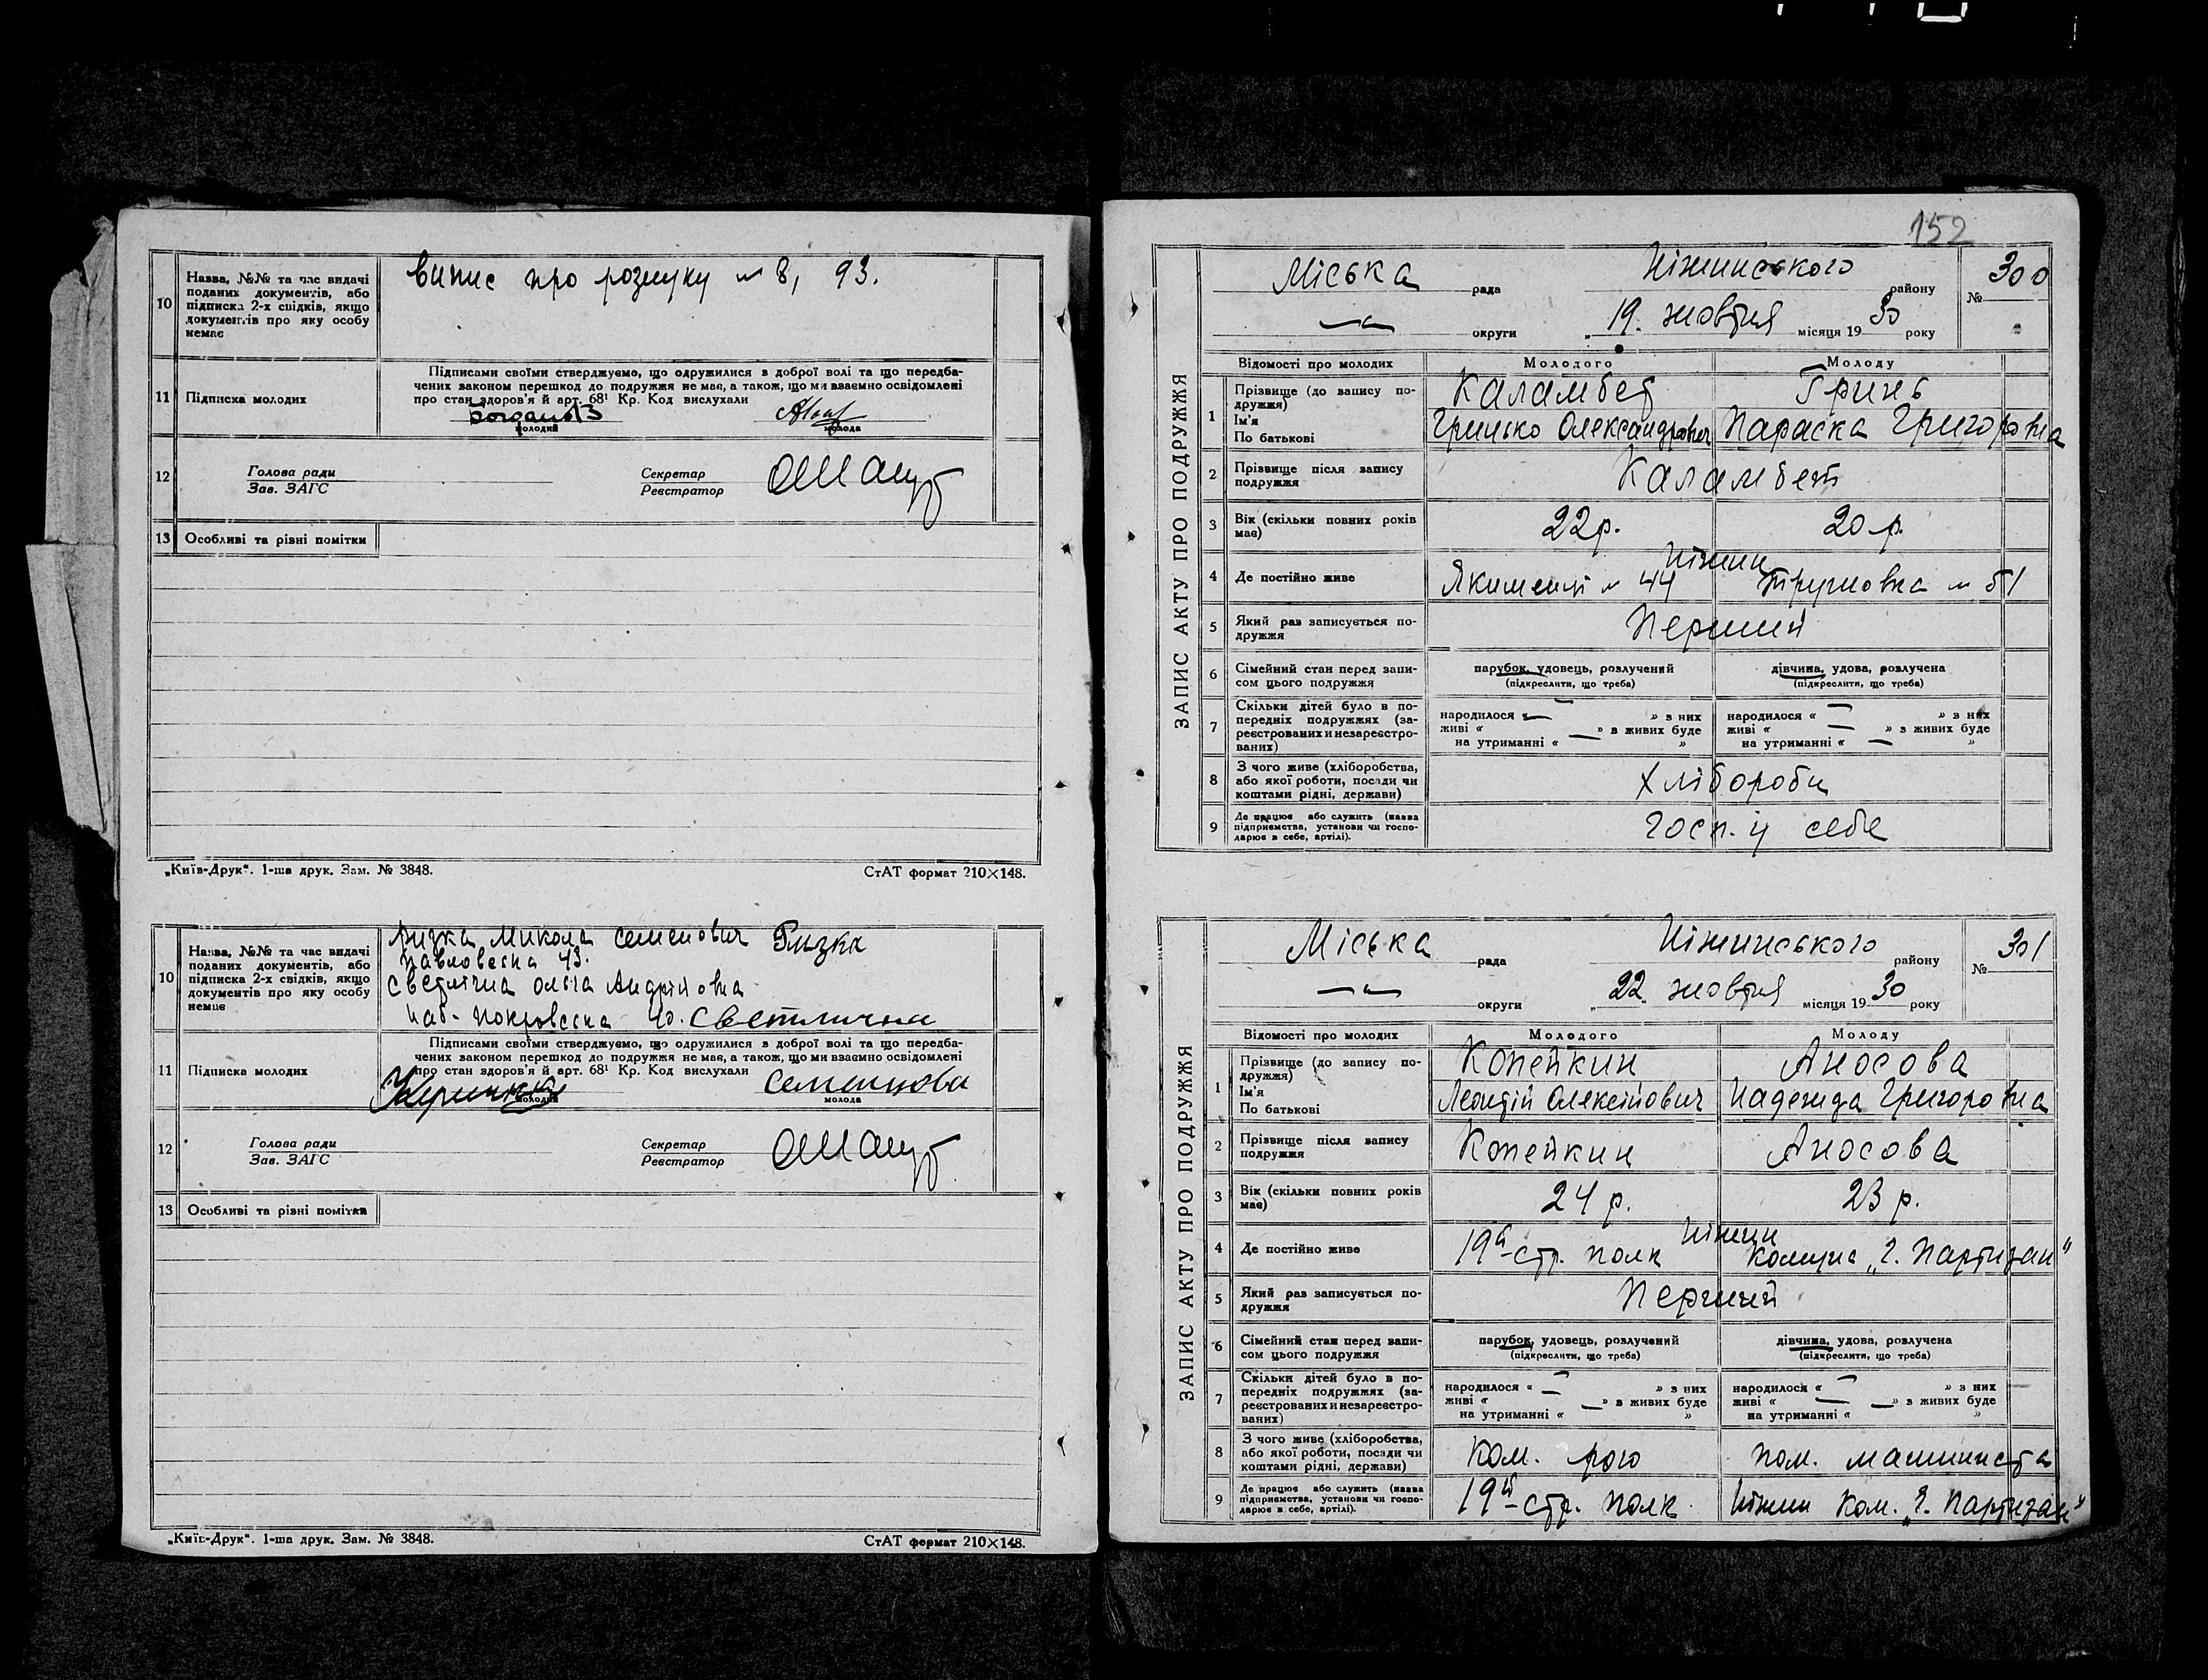 10 Назва, №№ та час видачі поданих документів, або підписка 2-х свідків, якщо документів про яку особу немає
Випис про розлуку № 8, 93.
11 Підписка молодих
Підписами своїми стверджуємо, що одружилися з доброї волі та що передба-
чених законом перешкод до подружжя не має, а також, що ми взаємно освідомлені
про стан здоров'я й арт. 68¹ Кр. Код вислухали
молодий
молода
12 Голова ради
Зав. ЗАГС
Секретар
Реєстратор
13 Особливі та різні помітки
„Київ-Друк“. 1-ша друк. Зам. № 3848.
СтАТ формат 210×148.
10 Назва, №№ та час видачі поданих документів, або підписка 2-х свідків, якщо документів про яку особу немає
Микола Семенович
43.
Светлична Ольга Андріївна
Светлична
11 Підписка молодих
Підписами своїми стверджуємо, що одружилися в доброї волі та що передба-
чених законом перешкод до подружжя не має, а також, що ми взаємно освідомлені
про стан здоров'я й арт. 68¹ Кр. Код вислухали
Семенцова
молодий
молода
12 Голова ради
Зав. ЗАГС
Секретар
Реєстратор
13 Особливі та різні помітки
„Київ-Друк“. 1-ша друк. Зам. № 3848.
СтАТ формат 210×148.
152
ЗАПИС АКТУ ПРО ПОДРУЖЖЯ
Міська рада Ніжинського району № 300
округи 19. жовтня місяця 1930 року
Відомості про молодих
Молодого
Молоду
1 Прізвище (до запису подружжя)
Ім'я
По батькові
Каламбет
Гринь
Грицько Олександрович
Параска Григоровна
2 Прізвище після запису подружжя
Каламбет
3 Вік (скільки повних років має)
22 р.
20 р.
4 Де постійно живе
Ніжин
№ 44
5 Який раз записується подружжя
Перший
6 Сімейний стан перед записом цього подружжя
парубок, удовець, розлучений
(підкреслити, що треба)
дівчина, удова, розлучена
(підкреслити, що треба)
7 Скільки дітей було в попередніх подружжях (зареєстрованих и незареєстрованих)
народилося « — » з них
живі « — » з живих буде
на утриманні « »
народилося « — » з них
живі « — » з живих буде
на утриманні « — »
8 З чого живе (хліборобства, або якої роботи, посади чи коштами рідні, держави)
Хлібороби
9 Де працює або служить (назва підприємства, установи чи господарює в себе, артілі).
Госп. у себе
ЗАПИС АКТУ ПРО ПОДРУЖЖЯ
Міська рада Ніжинського району № 301
округи 22. жовтня місяця 1930 року
Відомості про молодих
Молодого
Молоду
1 Прізвище (до запису подружжя)
Ім'я
По батькові
Копейкин
Аносова
Леонтій Олексійович
Надежда Григоровна
2 Прізвище після запису подружжя
Копейкин
Аносова
3 Вік (скільки повних років має)
24 р.
23 р.
4 Де постійно живе
Ніжин
19й стр. полк
Комуна „Ч. Партизан“
5 Який раз записується подружжя
Перший
6 Сімейний стан перед записом цього подружжя
парубок, удовець, розлучений
(підкреслити, що треба)
дівчина, удова, розлучена
(підкреслити, що треба)
7 Скільки дітей було в попередніх подружжях (зареєстрованих и незареєстрованих)
народилося « — » з них
живі « — » з живих буде
на утриманні « »
народилося « — » з них
живі « — » з живих буде
на утриманні « »
8 З чого живе (хліборобства, або якої роботи, посади чи коштами рідні, держави)
Ком. рою
пом. машиніста
9 Де працює або служить (назва підприємства, установи чи господарює в себе, артілі).
19й стр. полк
Ніжин Ком. „Ч. Партизан“